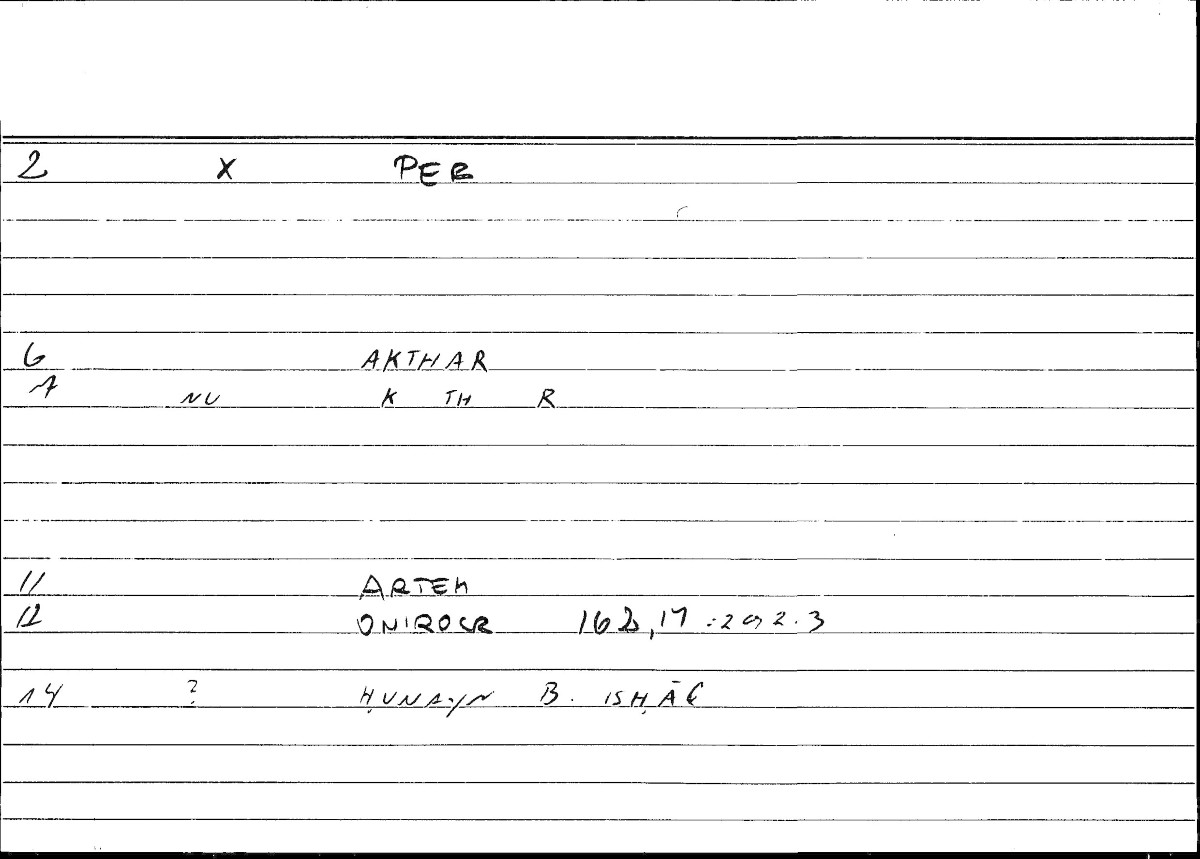 2 X PER
6 AKTHAR
7 NU K TH R
11 ARTEM
12 ONIROCR 162,17 :292.3
14 ? ḤUNAYN B. ISḤĀQ